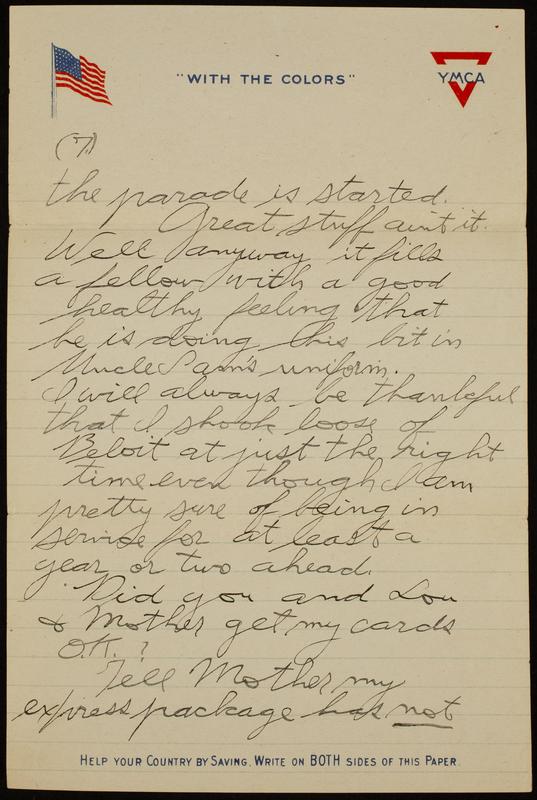 "WITH THE COLORS"
YMCA
(7)
the parade is started.
Great stuff aint it.
Well anyway it fills
a fellow with a good
healthy feeling that
he is doing his bit in
Uncle Sam's uniform.
I will always be thankful
that I shook loose of
Beloit at just the right
time even though I am
pretty sure of being in
service for at least a
year or two ahead.
Did you and Lou
& Mother get my cards
O.K. ?
Tell Mother my
express package has not
HELP YOUR COUNTRY BY SAVING. WRITE ON BOTH SIDES OF THIS PAPER.